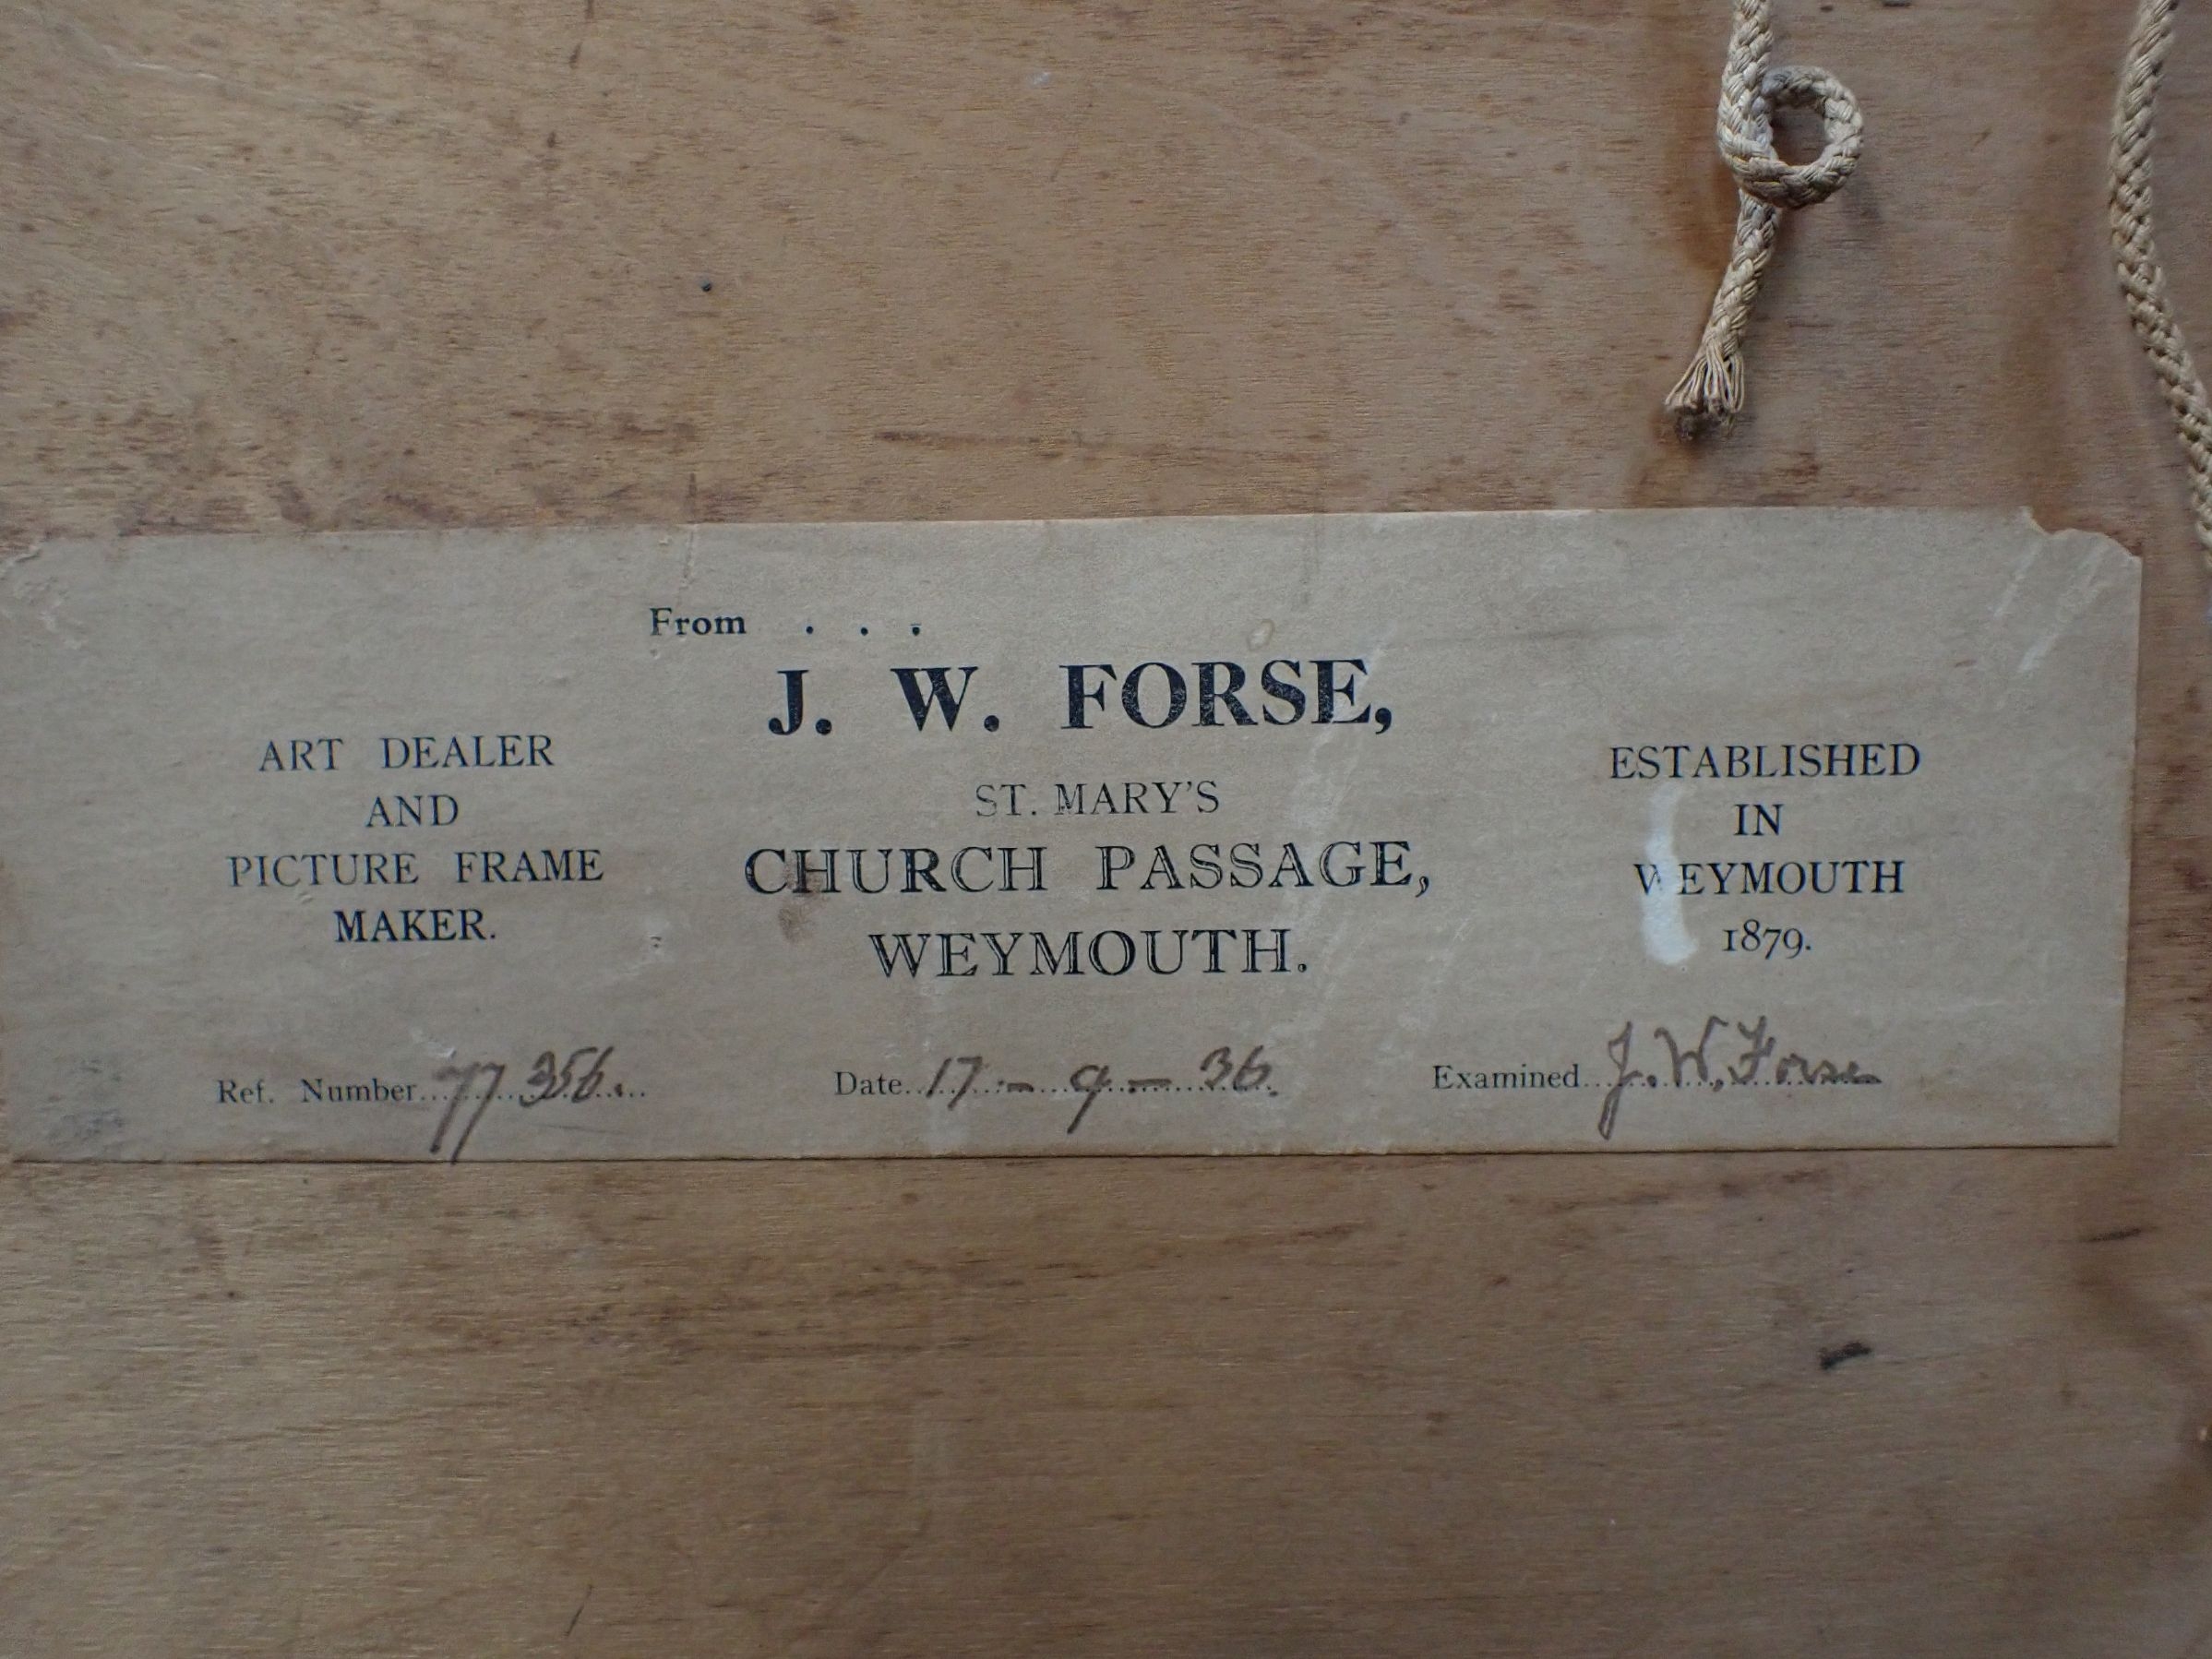 From . . .
J. W. FORSE,
ST. MARY'S
CHURCH PASSAGE,
WEYMOUTH.
ART DEALER
AND
PICTURE FRAME
MAKER.
ESTABLISHED
IN
WEYMOUTH
1879.
Ref. Number 77356.
Date 17 - 9 - 36.
Examined J. W. Forse